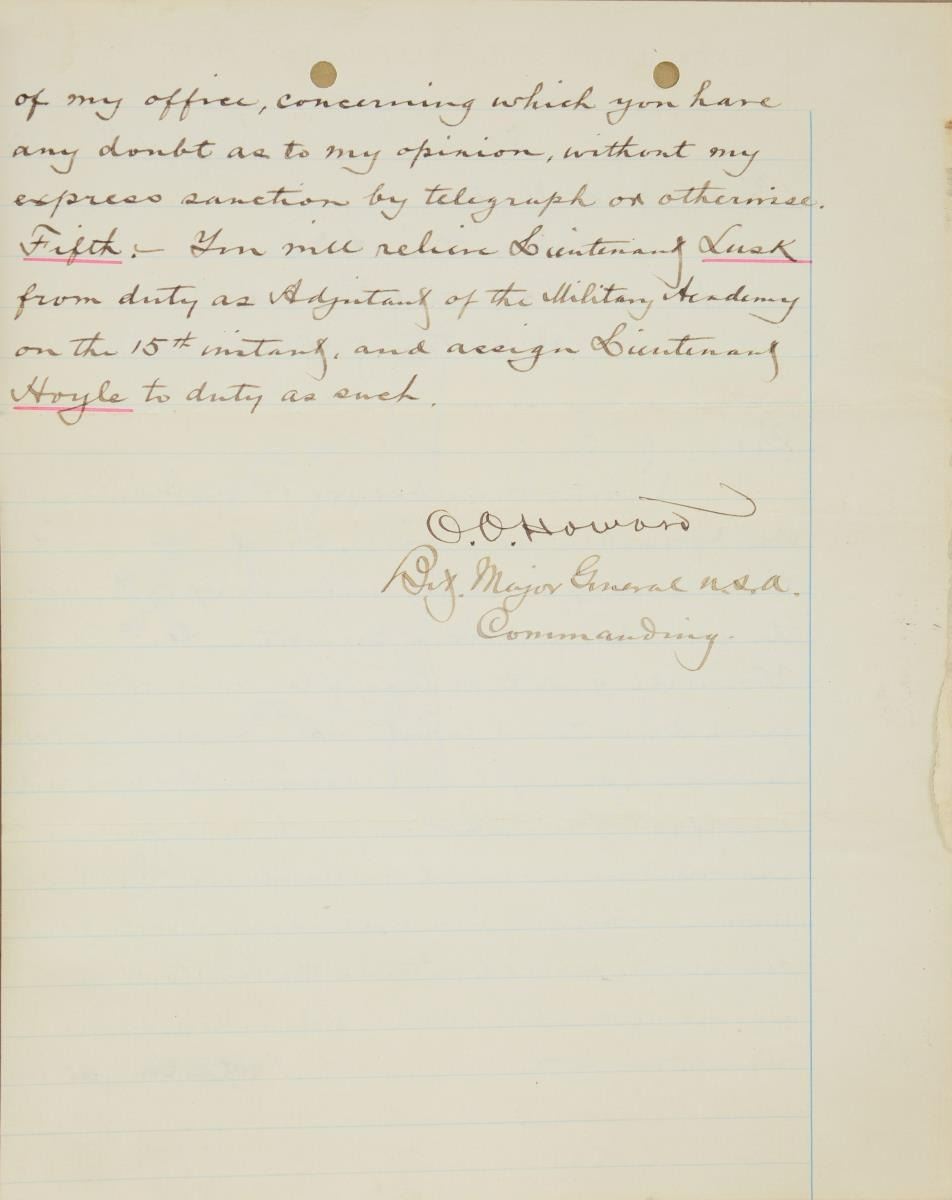 of my office, concerning which you have
any doubt as to my opinion, without my
express sanction by telegraph or otherwise.
Fifth:— You will relieve Lieutenant Lusk
from duty as Adjutant of the Military Academy
on the 15th instant, and assign Lieutenant
Hoyle to duty as such.
O. O. Howard
Bvt. Major General U.S.A.
Commanding.